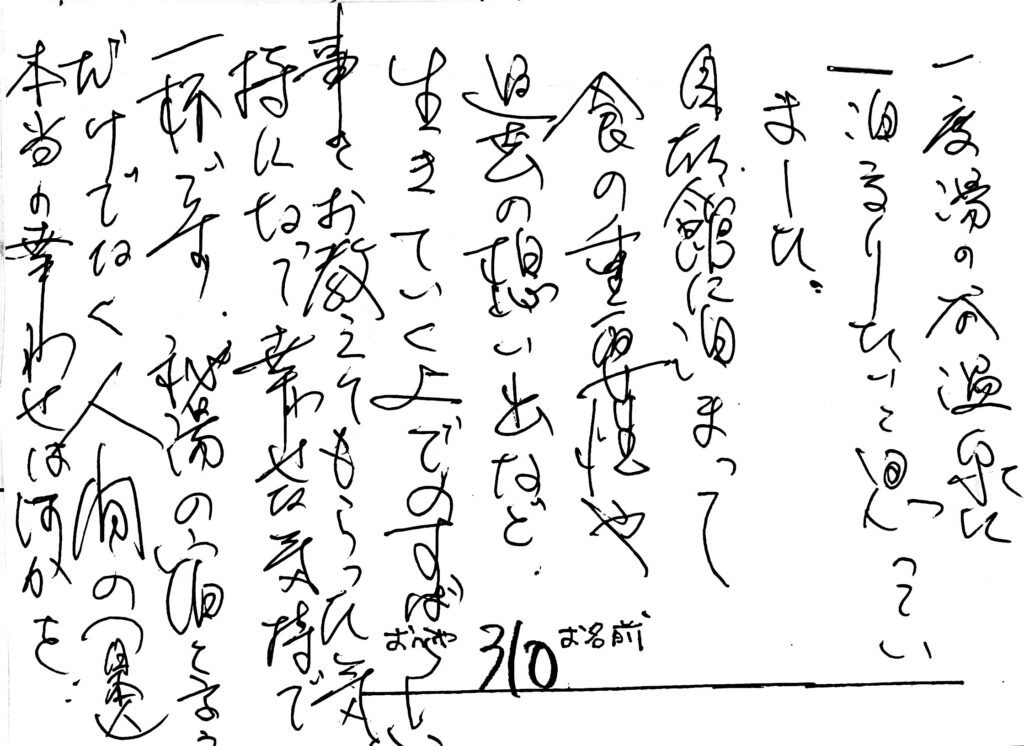 一度湯の谷温泉に
一泊るりしたいと思ってい
ました。
自然館に泊まって
食の重要性や
過去の想い出など
生きていく上でのすばらしい
事をお教えてもらった気
持になって幸わせな気持で
一杯です。秘湯の宿と言う
だけでなく人間の(日本人)
本当の幸わせは何かを
おへや 310 お名前